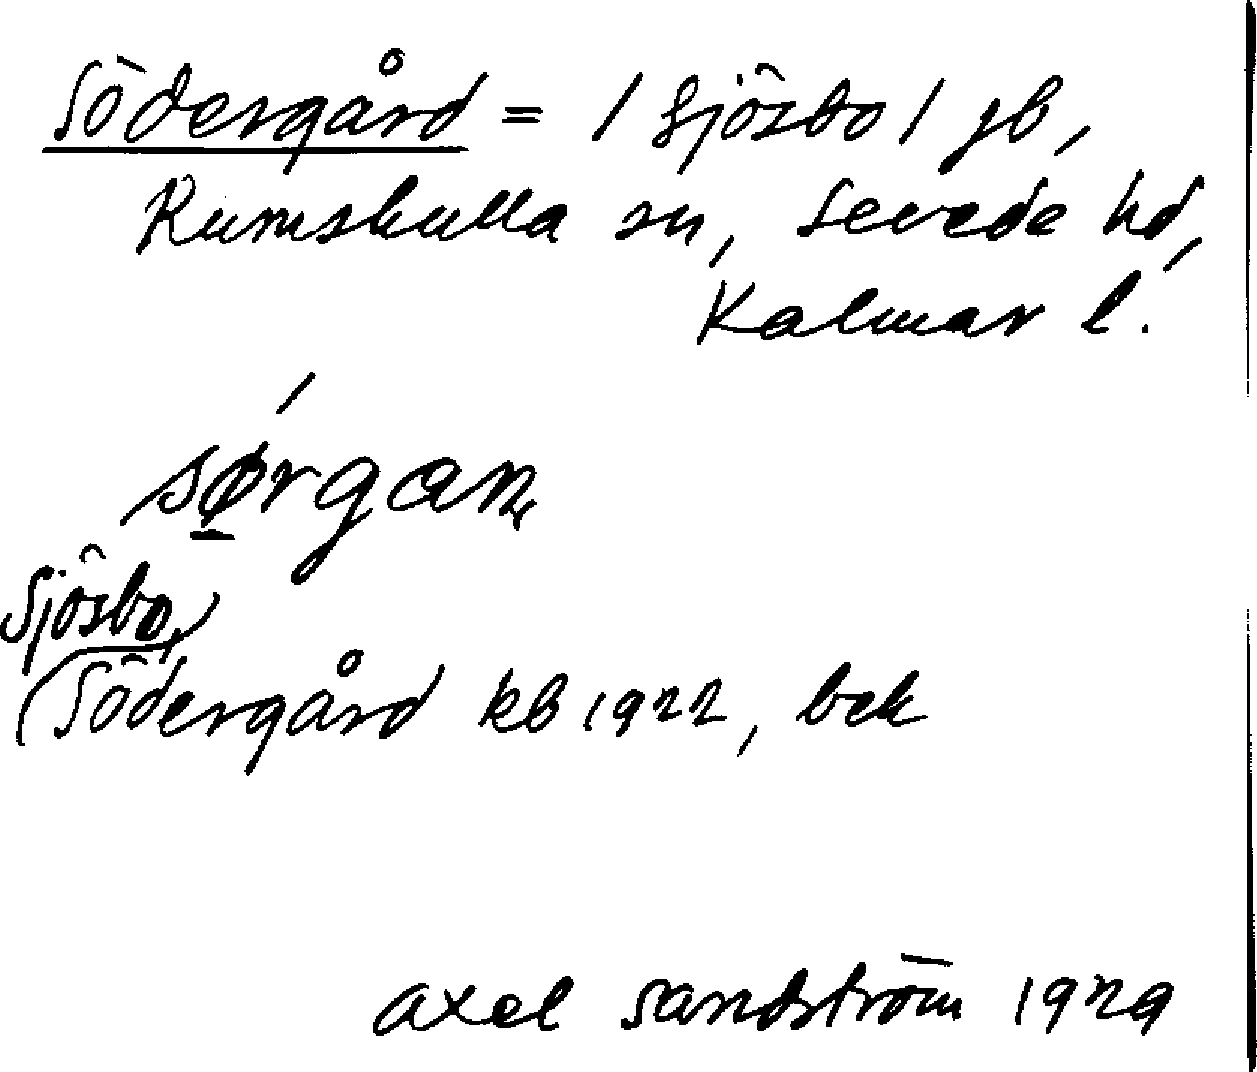 Södergård = / Sjösbo / gb,
Rumskulla sn, Sevede hd,
Kalmar l.
sørgan,
Sjösbo,
(Södergård kb 1922, bek
Axel Sandström 1929